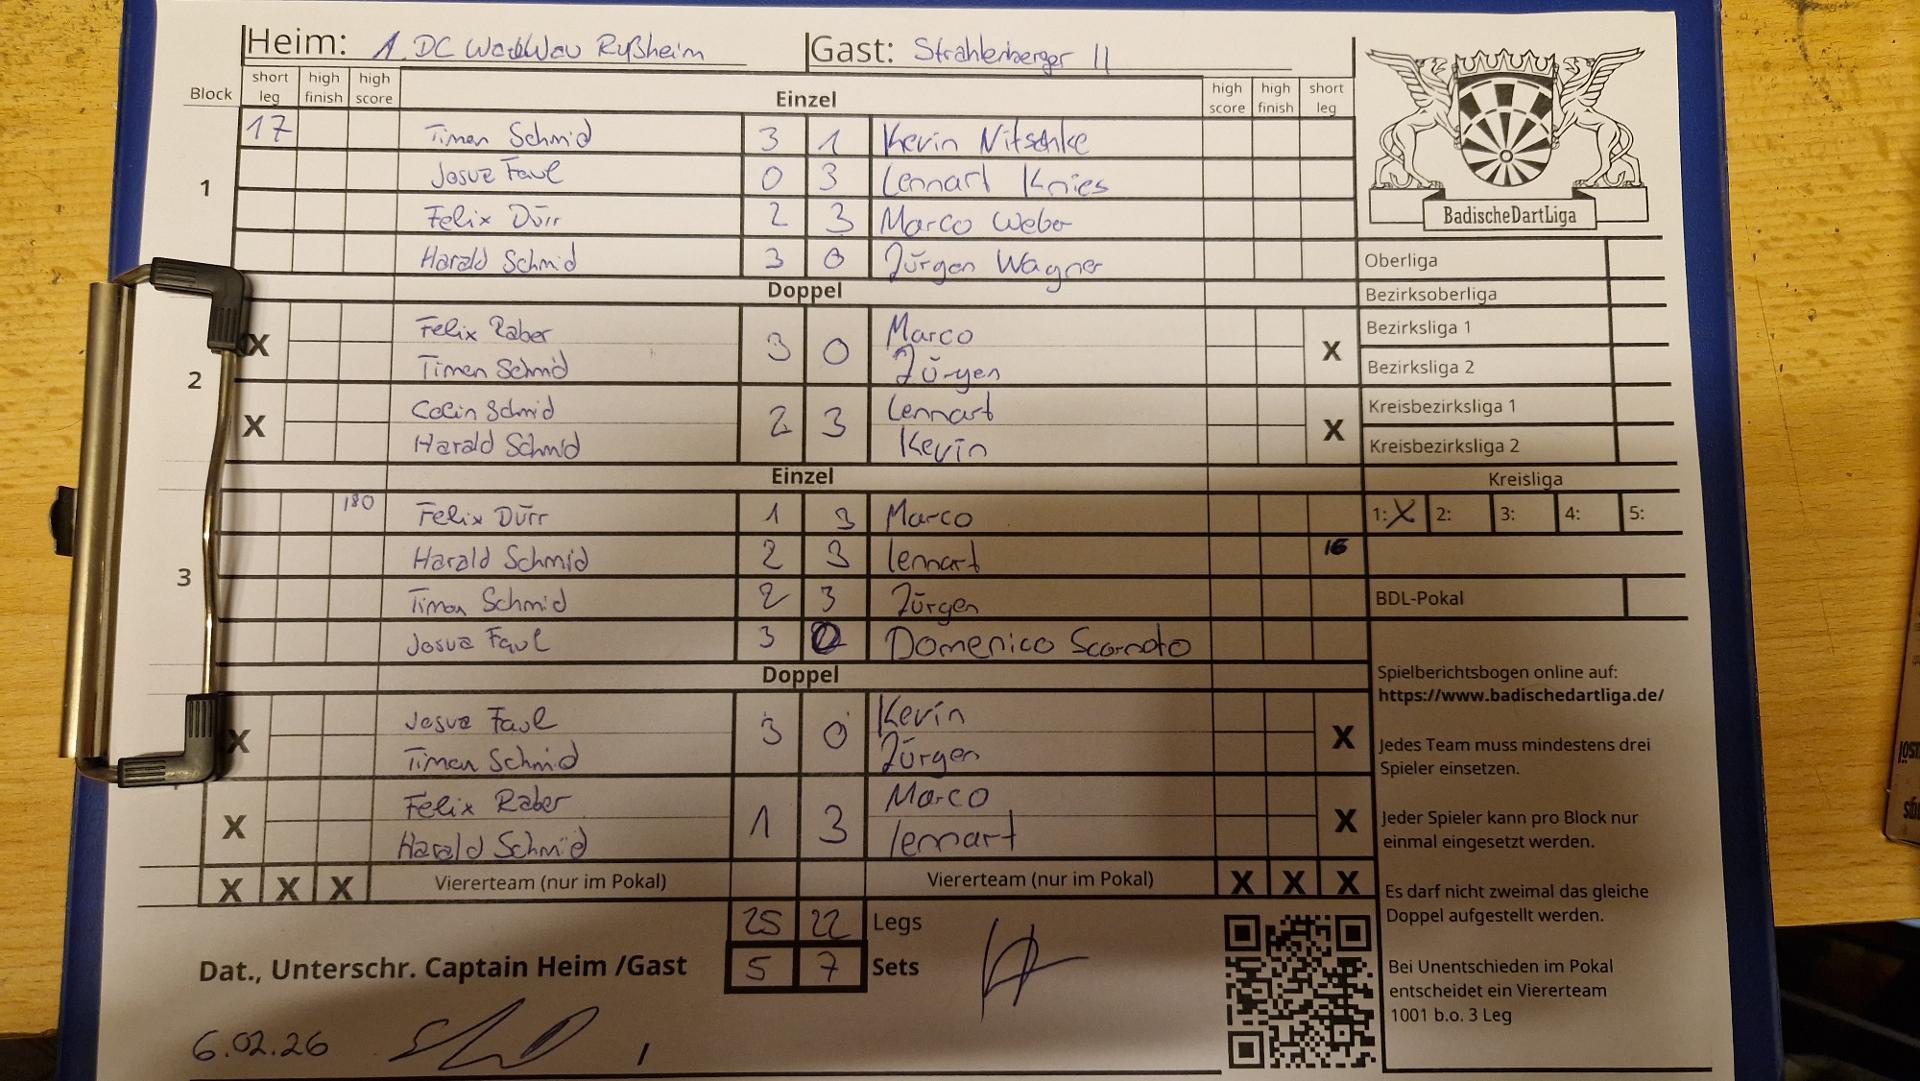 Heim: 1. DC WauWau Rußheim Gast: Strahlenberger II
Block short leg high finish high score Einzel high score high finish short leg
1
17 Timon Schmid 3 1 Kevin Nitschke
Josua Faul 0 3 Lennart Knies
Felix Dürr 2 3 Marco Weber
Harald Schmid 3 0 Jürgen Wagner
BadischeDartLiga
Oberliga
Doppel
Bezirksoberliga
2
X Felix Raber 3 0 Marco X
Timon Schmid Jürgen
Bezirksliga 1
Bezirksliga 2
X Colin Schmid 2 3 Lennart X
Harald Schmid Kevin
Kreisbezirksliga 1
Kreisbezirksliga 2
Einzel
Kreisliga
1: X 2: 3: 4: 5:
3
180 Felix Dürr 1 3 Marco
Harald Schmid 2 3 Lennart 16
Timon Schmid 2 3 Jürgen
Josua Faul 3 0 Domenico
BDL-Pokal
Doppel
X Josua Faul 3 0 Kevin X
Timon Schmid Jürgen
X Felix Raber 1 3 Marco X
Harald Schmid Lennart
X X X Viererteam (nur im Pokal) Viererteam (nur im Pokal) X X X
25 22 Legs
Dat., Unterschr. Captain Heim /Gast 5 7 Sets
6.02.26
Spielberichtsbogen online auf:
https://www.badischedartliga.de/
Jedes Team muss mindestens drei
Spieler einsetzen.
Jeder Spieler kann pro Block nur
einmal eingesetzt werden.
Es darf nicht zweimal das gleiche
Doppel aufgestellt werden.
Bei Unentschieden im Pokal
entscheidet ein Viererteam
1001 b.o. 3 Leg